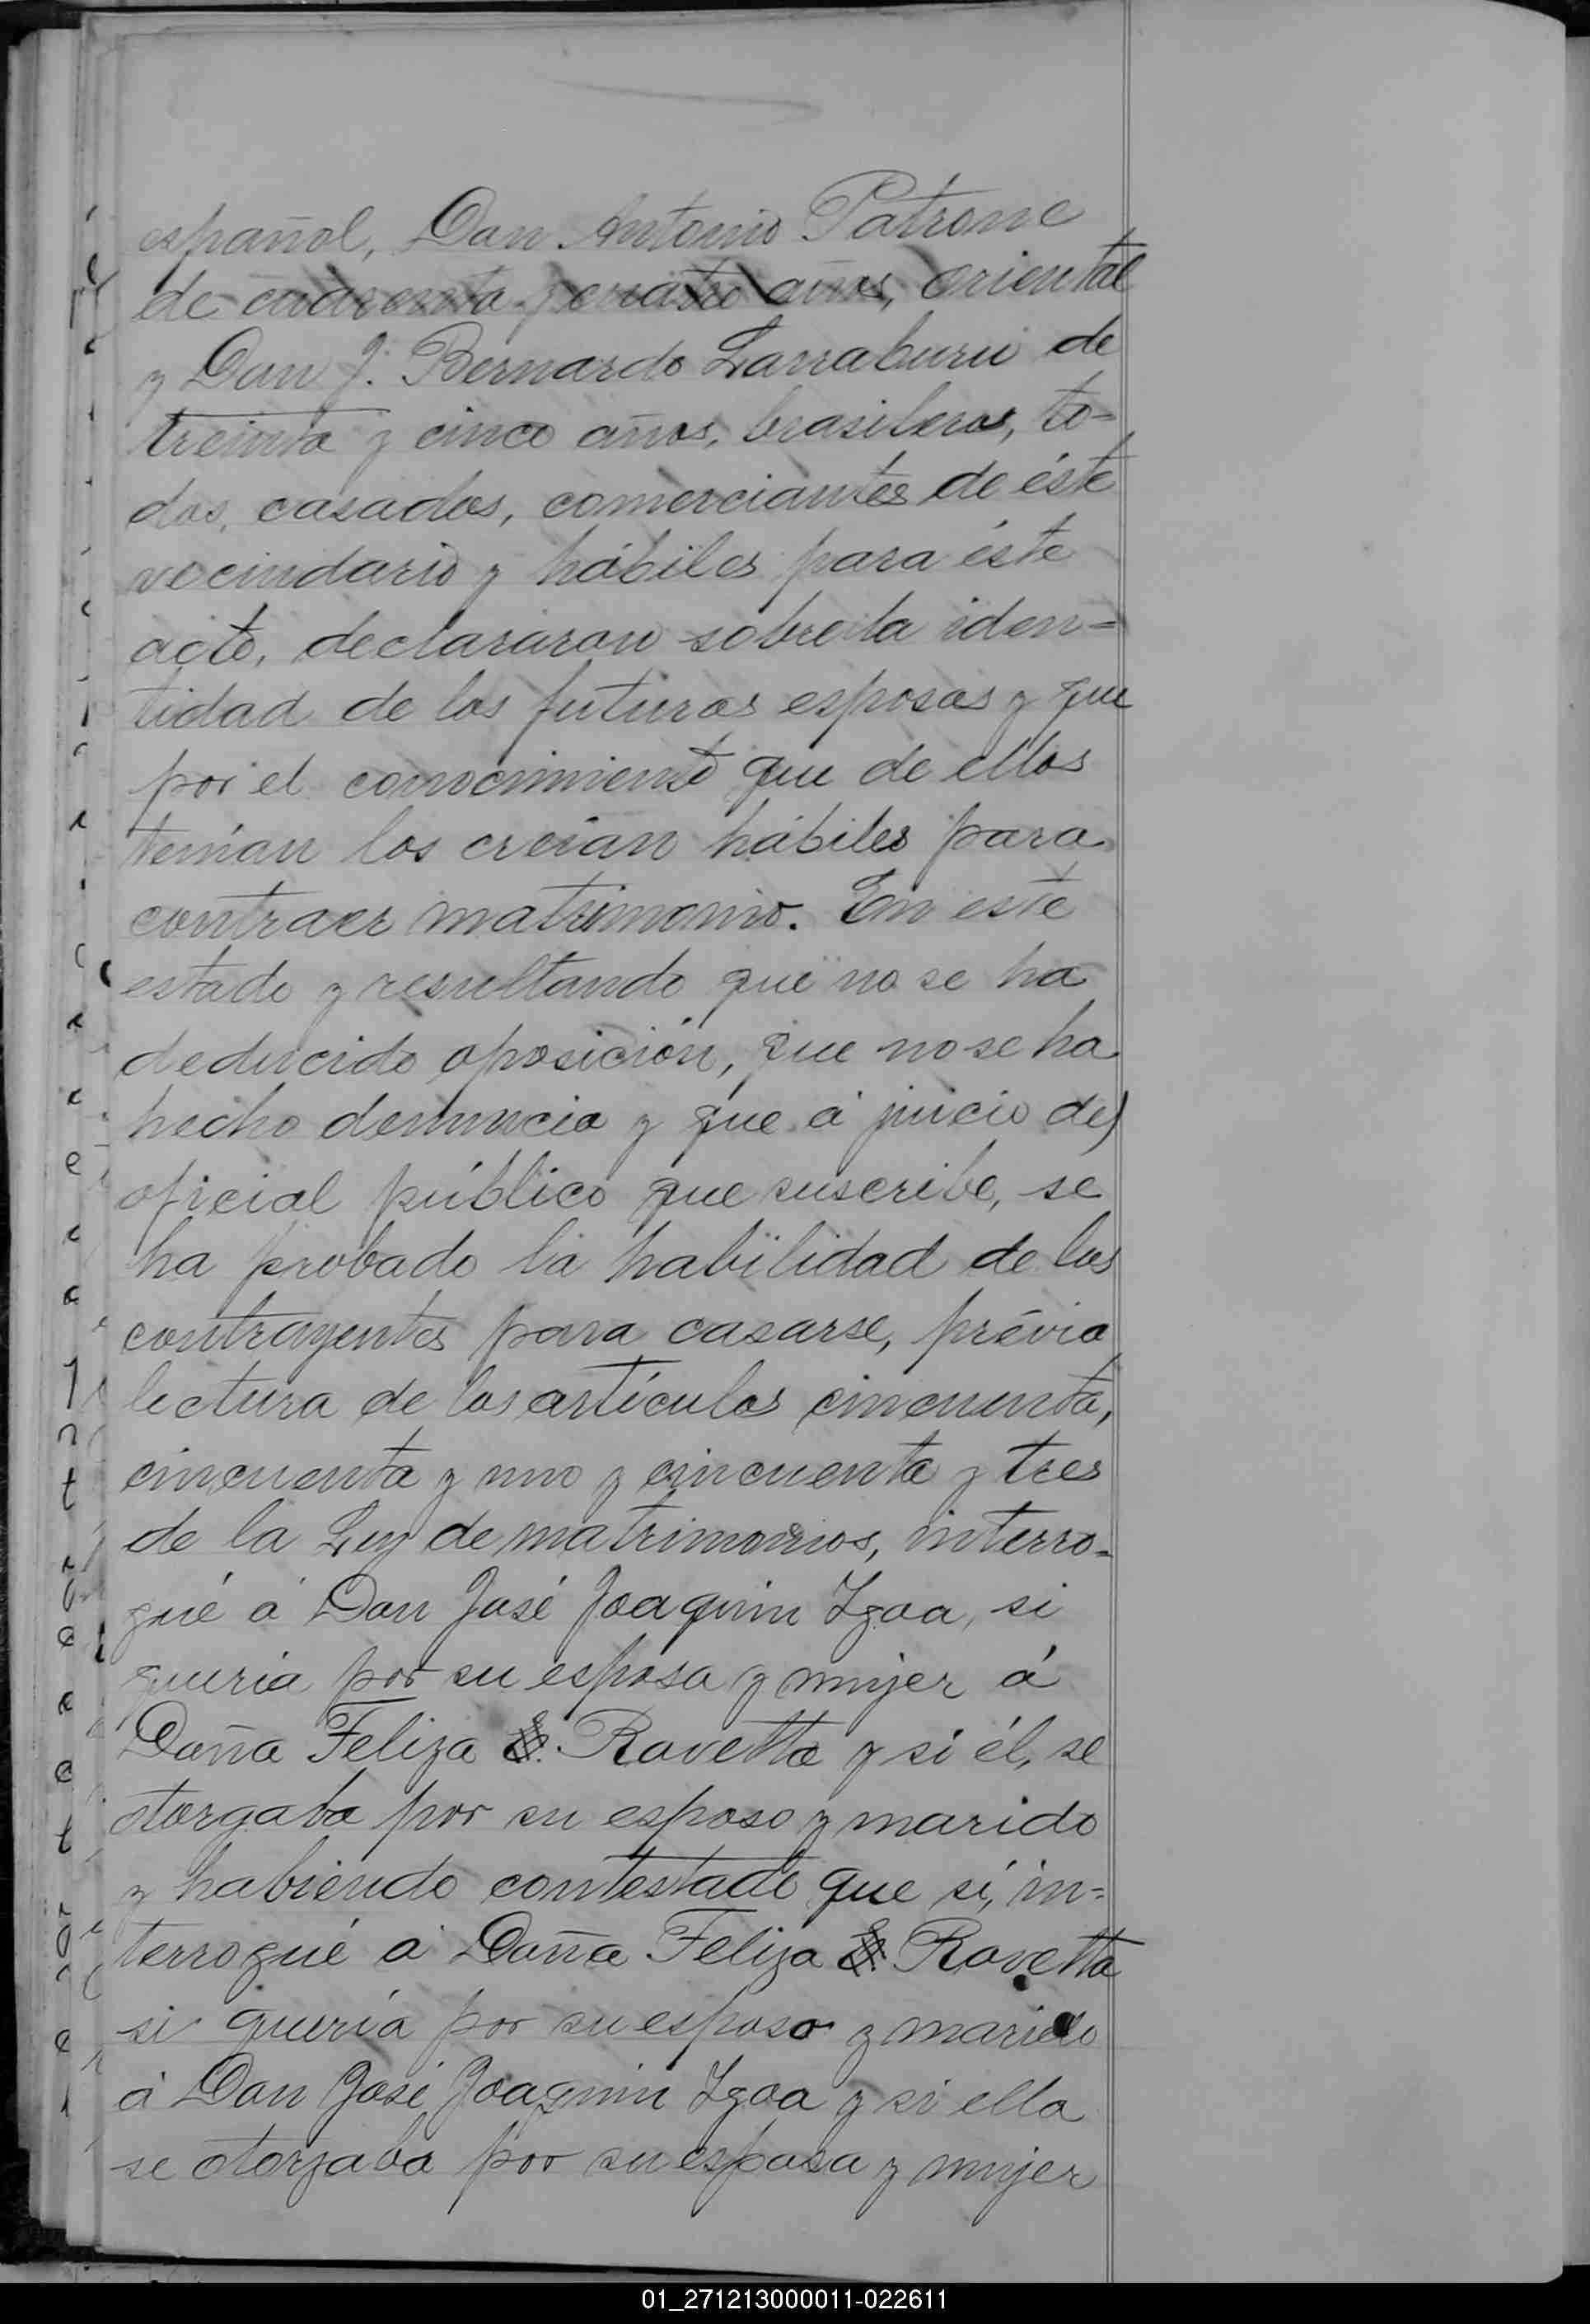 español, Don Antonio Patrone
de cuarenta y cuatro años, oriental
y Don J. Bernardo Larraburu de
treinta y cinco años, brasileros, to-
dos, casados, comerciantes de éste
vecindario y hábiles para éste
acto, declararon sobre la iden=
tidad de los futuros esposos y que
por el conocimiento que de ellos
tenían los creían hábiles para
contraer matrimonio. En este
estado y resultando que no se ha
deducido oposición, que no se ha
hecho denuncia y que á juicio del
oficial público que suscribe, se
ha probado la habilidad de los
contrayentes para casarse, prévia
lectura de los artículos cincuenta,
cincuenta y uno y cincuenta y tres
de la Ley de matrimonios, interro-
gué á Don José Joaquin Izoa, si
queria por su esposa y mujer á
Doña Feliza Rovetta y si él, se
otorgaba por su esposo y marido
y habiendo contestado que sí, in=
terrogué á Doña Feliza Rovetta
si quería por su esposo y marido
á Don José Joaquin Izoa y si ella
se otorgaba por su esposa y mujer
01_271213000011-022611